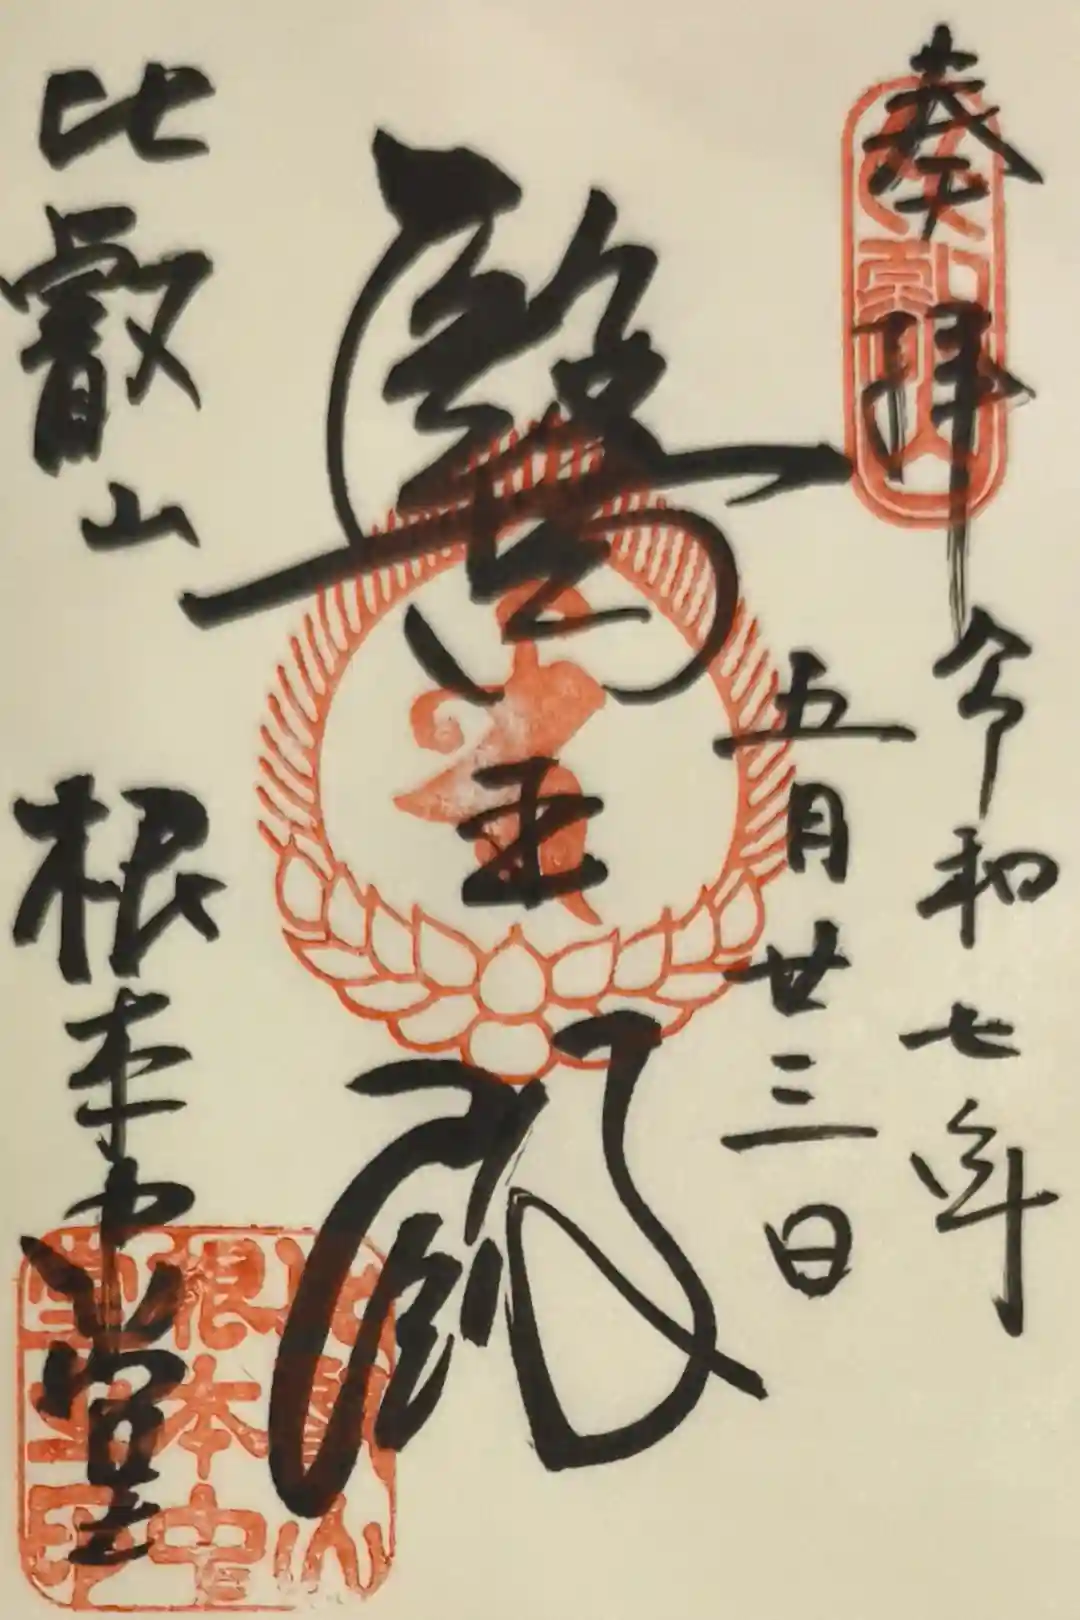 奉拝
令和七年
五月廿三日
醫王殿
比叡山
根本中堂
比叡山
根本中
堂之印